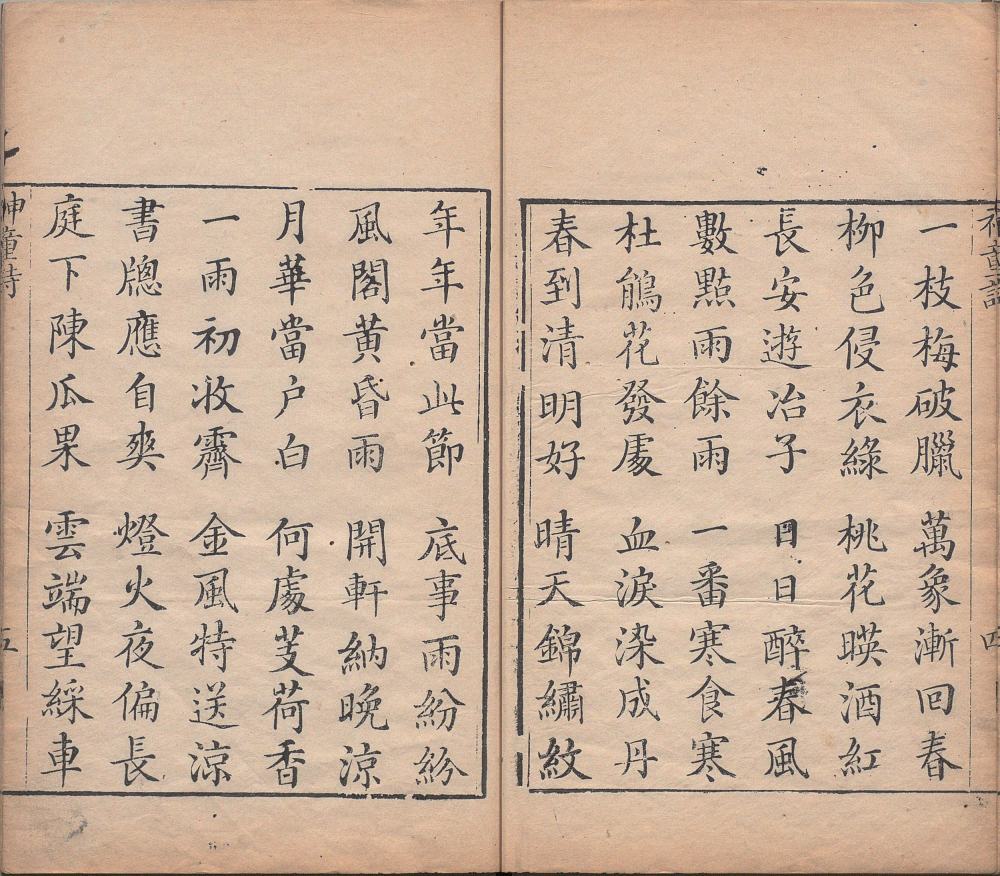 神童詩
一枝梅破臘 萬象漸回春
柳色侵衣綠 桃花暎酒紅
長安遊冶子 日日醉春風
數點雨餘雨 一番寒食寒
杜鵑花發處 血淚染成丹
春到清明好 晴天錦繡紋
四
年年當此節 底事雨紛紛
風閣黄昏雨 開軒納晚涼
月華當户白 何處芰荷香
一雨初收霽 金風特送涼
書牎應自爽 燈火夜偏長
庭下陳瓜果 雲端望綵車
神童詩
五